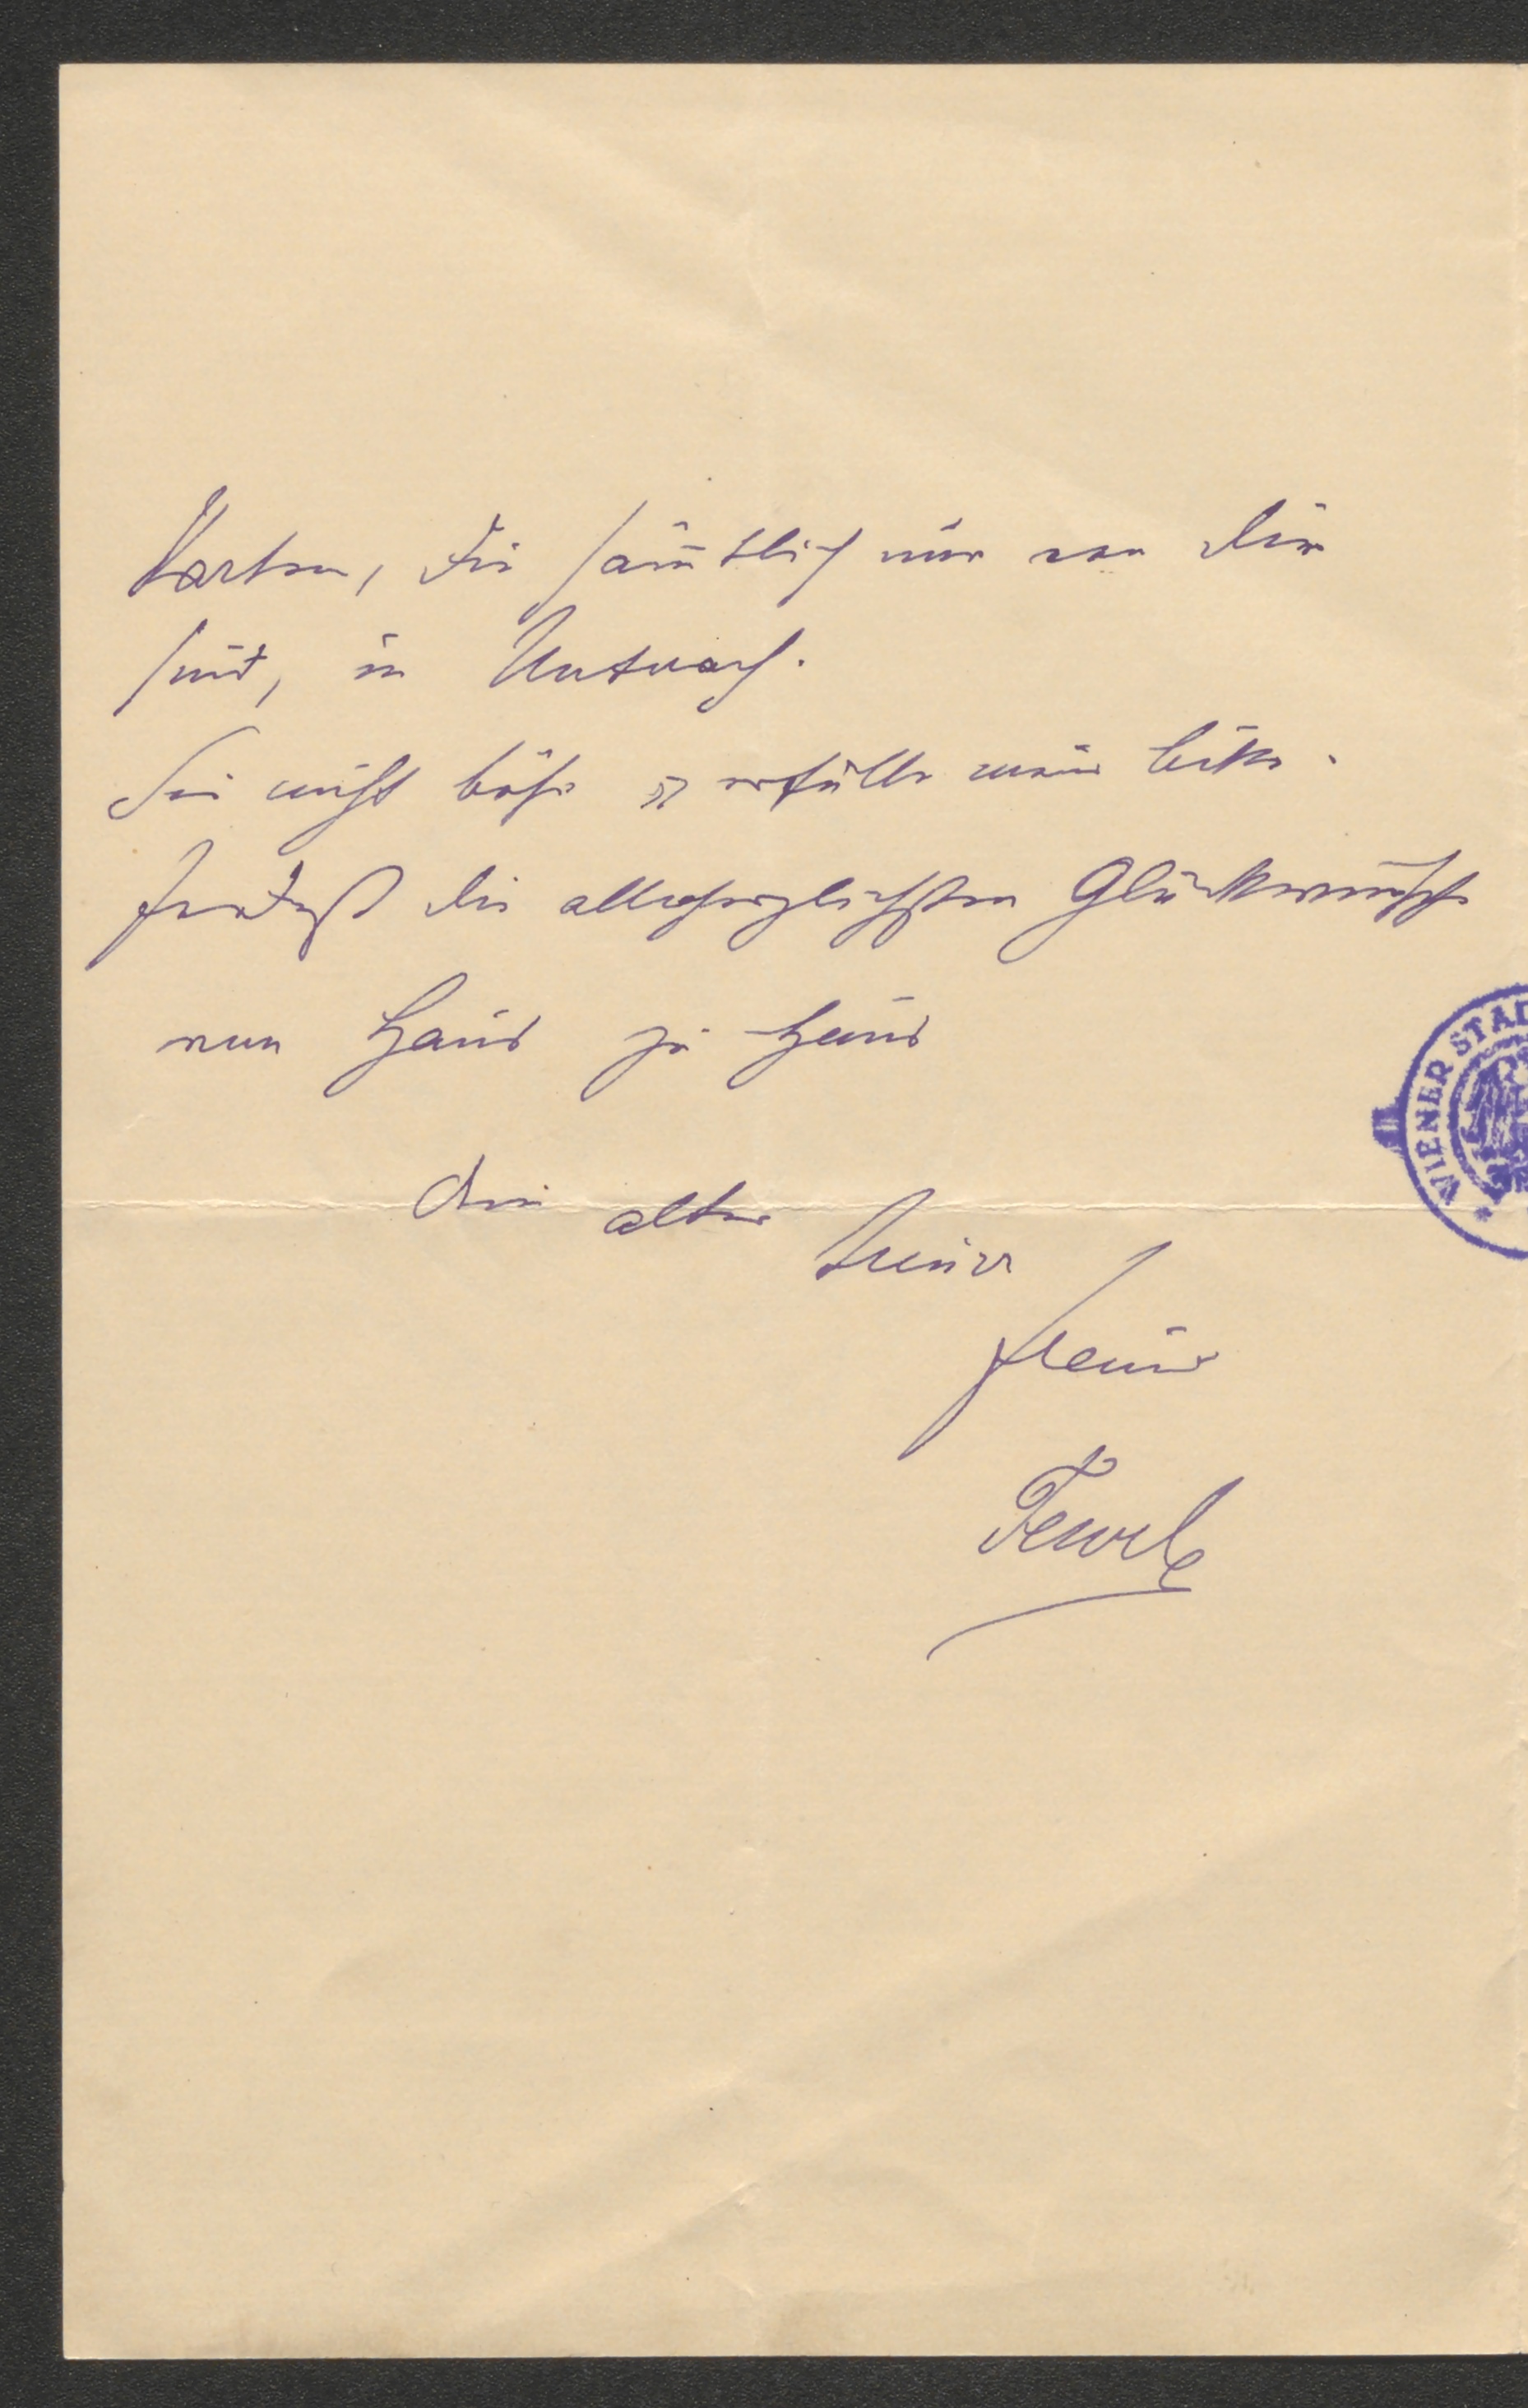 Karten, die sämtlich nur von Dir
sind, in Unterach.
Sei nicht böse u erfülle meine bitte.
die allerherzlichsten Glückwünsche
von Haus zu Haus
Dein alter treuer
Freund
Tewele
WIENER STAD